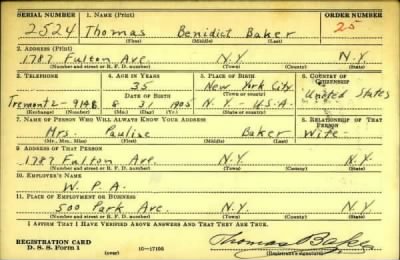 SERIAL NUMBER 1. NAME (Print) ORDER NUMBER
2524 Thomas Benidict Baker 25
(First) (Middle) (Last)
2. ADDRESS (Print)
1787 Fulton Ave. N.Y. N.Y.
(Number and street or R. F. D. number) (Town) (County) (State)
3. TELEPHONE 4. AGE IN YEARS 5. PLACE OF BIRTH 6. COUNTRY OF CITIZENSHIP
35 New York City United States
DATE OF BIRTH (Town or county)
Tremont 2- 8 31 1905 N.Y. - U.S.A.
(Exchange) (Number) (Mo.) (Day) (Yr.) (State or country)
7. NAME OF PERSON WHO WILL ALWAYS KNOW YOUR ADDRESS 8. RELATIONSHIP OF THAT PERSON
Mrs. Pauline Baker Wife
(Mr., Mrs., Miss) (First) (Middle) (Last)
9. ADDRESS OF THAT PERSON
1787 Fulton Ave. N.Y. N.Y.
(Number and street or R. F. D. number) (Town) (County) (State)
10. EMPLOYER'S NAME
W. P. A.
11. PLACE OF EMPLOYMENT OR BUSINESS
500 Park Ave. N.Y. N.Y.
(Number and street or R. F. D. number) (Town) (County) (State)
I AFFIRM THAT I HAVE VERIFIED ABOVE ANSWERS AND THAT THEY ARE TRUE.
REGISTRATION CARD
D. S. S. Form 1 (over) 16-17105 Thomas Baker
(Registrant's signature)